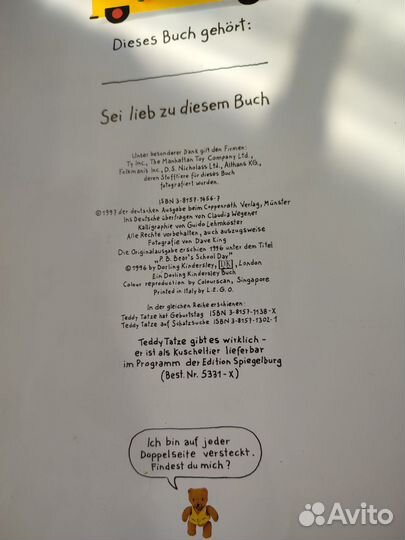 Dieses Buch gehört:
Sei lieb zu diesem Buch
Unser besonderer Dank gilt den Firmen:
Ty Inc., The Manhattan Toy Company Ltd.,
Folkmanis Inc., D.S. Nicholass Ltd., Althans KG,
deren Stofftiere für dieses Buch
fotografiert wurden.
ISBN 3-8157-1456-7
©1997 der deutschen Ausgabe beim Coppenrath Verlag, Münster
Ins Deutsche übertragen von Claudia Wegener
Kalligraphie von Guido Lehmköster
Alle Rechte vorbehalten, auch auszugsweise
Fotografie von Dave King
Die Originalausgabe erschien 1996 unter dem Titel
„P.B. Bear's School Day"
©1996 by Dorling Kindersley, DK, London
Ein Dorling Kindersley Buch
Colour reproduction by Colourscan, Singapore
Printed in Italy by L.E.G.O.
In der gleichen Reihe erschienen:
Teddy Tatze hat Geburtstag ISBN 3-8157-1138-X
Teddy Tatze auf Schatzsuche ISBN 3-8157-1302-1
Teddy Tatze gibt es wirklich –
er ist als Kuscheltier lieferbar
im Programm der Edition Spiegelburg
(Best. Nr. 5331-X)
Ich bin auf jeder
Doppelseite versteckt.
Findest du mich?
Avito